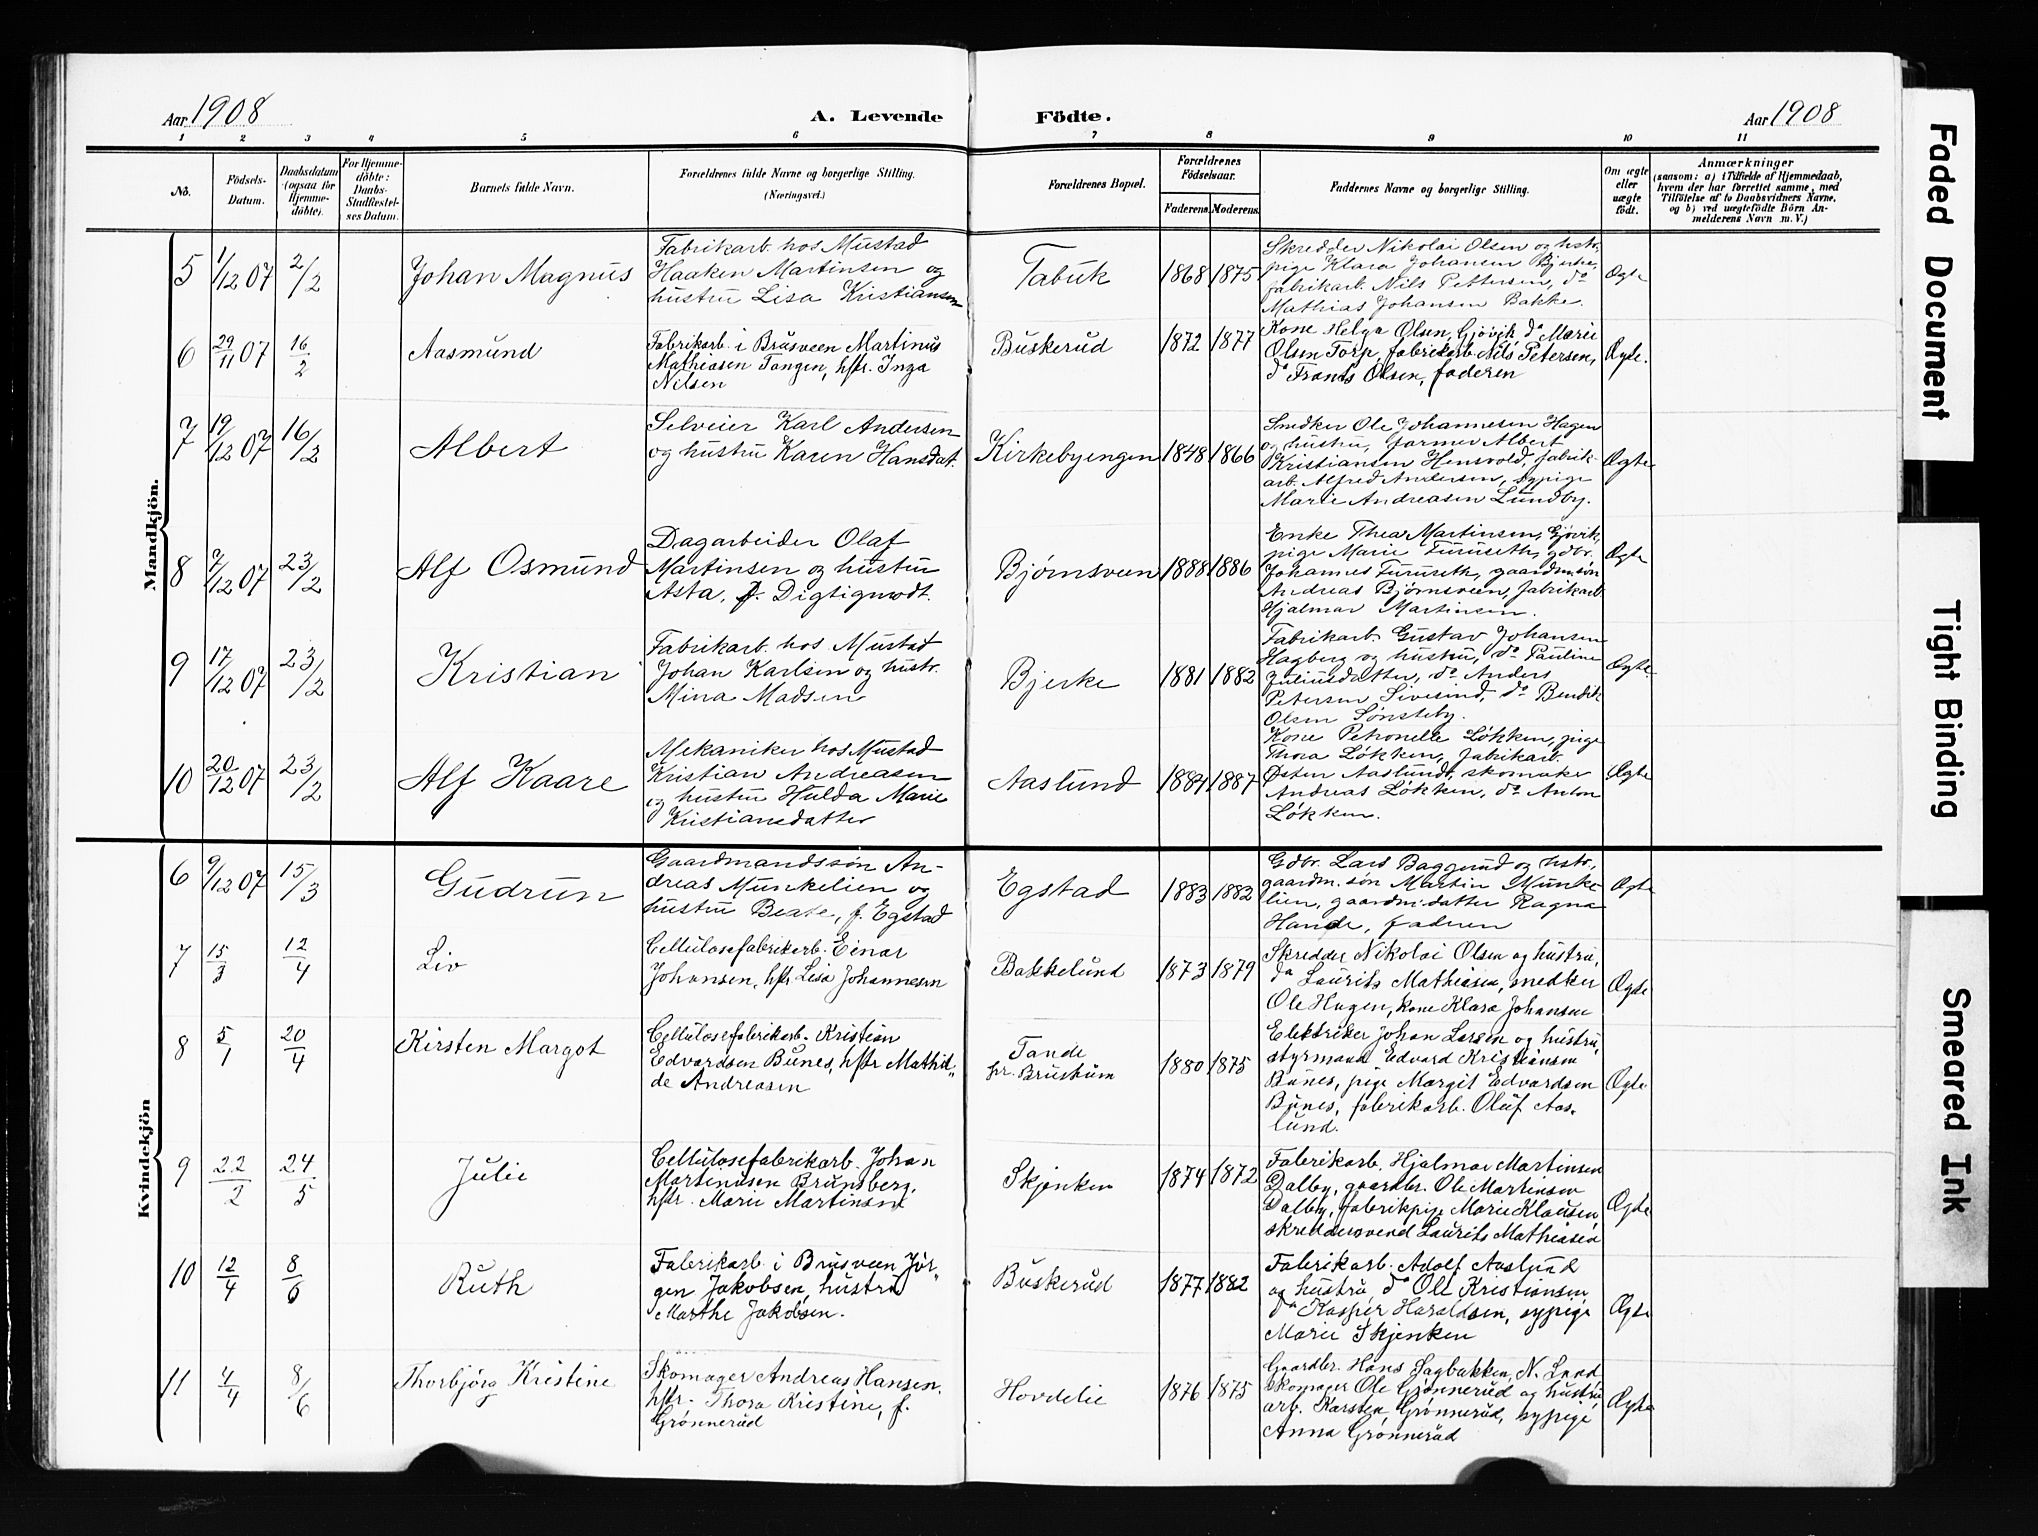 Aar 1908
A. Levende Födte.
Aar 1908
1 2 3 4 5 6 7 8 9 10 11
No.
Födsels-
Datum.
Daabsdatum
(ogsaa for
Hjemme-
döbte).
For Hjemme-
döbte:
Daabs-
Stadfæstel-
ses Datum.
Barnets fulde Navn.
Forældrenes fulde Navne og borgerlige Stilling.
(Næringsvei.)
Forældrenes Bopæl.
Forældrenes
Födselsaar.
Faderens. Moderens.
Faddernes Navne og borgerlige Stilling.
Om ægte
eller
uægte
født.
Anmærkninger
(saasom: a) i Tilfælde af Hjemmedaab,
hvem der har forrettet samme, med
Tilföielse af to Daabsvidners Navne,
og b) ved uægtefödte Börn An-
melderens Navn m. V.)
Mandkjön.
5 1/12 07 2/2 Johan Magnus
Fabrikarb. hos Mustad
Haaken Martinsen og
hustru Lisa Kristiansen
Tabuk 1868 1875
Skredder Nikolai Olsen og hstr.,
pige Klara Johansen Bjerke,
fabrikarb. Nils Pettersen, do
Mathias Johansen Bakke.
Ægte
6 29/11 07 16/2 Aasmund
Fabrikarb. i Brusveen Martinus
Mathiasen Tangen, hstr. Inga
Nilsen
Buskerud 1872 1877
Kone Helga Olsen, Gjøvik, do Marie
Olsen Torp, fabrikarb. Nils Petersen,
do Frants Olsen, faderen
Ægte.
7 19/12 07 16/2 Albert
Selveier Karl Andersen
og hustru Karen Hansdat.
Kirkebyengen 1848 1866
Snedker Ole Johannesen Hagen
og hustru, farmer Albert
Kristiansen Hensvold, fabrik-
arb. Alfred Andersen, sypige
Marie Andreasen Lundby.
Ægte
8 7/12 07 23/2 Alf Osmund
Dagarbeider Olaf
Martinsen og hustru
Asta, f. Digtigmodt.
Bjørnsveen 1888 1886
Enke Thea Martinsen, Gjøvik,
pige Marie Furuseth, gdbr.
Johannes Furuseth, gaardm.søn
Andreas Bjørnsveen, fabrikarb
Hjalmar Martinsen.
Ægte
9 17/12 07 23/2 Kristian
Fabrikarb. hos Mustad
Johan Karlsen og hustr.
Mina Madsen
Bjerke 1881 1882
Fabrikarb. Gustav Johansen
Hagberg og hustru, do Pauline
Juliusdatter, do Anders
Petersen Sivesind, do Bendik
Olsen Sønsteby.
Ægte
10 20/12 07 23/2 Alf Kaare
Mekaniker hos Mustad
Kristian Andreasen
og hustru Hulda Marie
Kristiansdatter
Aaslund 1884 1887
Kone Petronelle Løkken, pige
Thora Løkken, fabrikarb.
Østen Aaslund, skomaker
Andreas Løkken, do Anton
Løkken.
Ægte
Kvindekjön
6 9/12 07 15/3 Gudrun
Gaardmandssøn An-
dreas Munkelien og
hustru Beate, f. Egstad
Egstad 1883 1883
Gdbr. Lars Baggerud og hstr.,
gaardm.søn Martin Munke-
lien, gaardm.datter Ragna
Hande, faderen
Ægte
7 15/3 12/4 Liv
Cellulosefabrikarb. Einar
Johansen, hstr Lisa Johannesen
Bakkelund 1873 1879
Skredder Nikolai Olsen og hustru,
do Laurits Mathiasen, snedker
Ole Hagen, kone Klara Johansen
Ægte
8 5/1 20/4 Kirsten Margot
Cellulosefabrikarb. Kristian
Edvardsen Bunes, hstr Mathil-
de Andreasen
Tande
pr. Bruskum 1880 1875
Elektriker Johan Larsen og hustru,
styrmand Edvard Kristiansen
Bunes, pige Margit Edvardsen
Bunes, fabrikarb. Oluf Aas-
lund.
Ægte
9 22/2 24/5 Julie
Cellulosefabrikarb. Johan
Martinusen Brunsberg,
hstr. Marie Martinsen
Skjenken 1874 1872
Fabrikarb. Hjalmar Martinsen
Dalby, gaardbr. Ole Martinsen
Dalby, fabrikpige Marie Klausen,
skreddersvend Laurits Mathiasen
Ægte
10 12/4 8/6 Ruth
Fabrikarb. i Brusveen Jör-
gen Jakobsen, hustru
Marthe Jakobsen.
Buskerud 1877 1882
Fabrikarb. Adolf Aaslund
og hustru, do Ole Kristiansen
do Kasper Haraldsen, sypige
Marie Skjenken
Ægte
11 4/4 8/6 Thorbjörg Kristine
Skomager Andreas Hansen,
hstr. Thora Kristine, f.
Grönnerud
Hovdelie 1876 1875
Gaardbr. Hans Sagbakken, N. Land
skomager Ole Grønnerud og hustru,
arb. Karsten Grønnerud, sypige
Anna Grønnerud
Ægte
Faded Document
Tight Binding
Smeared Ink